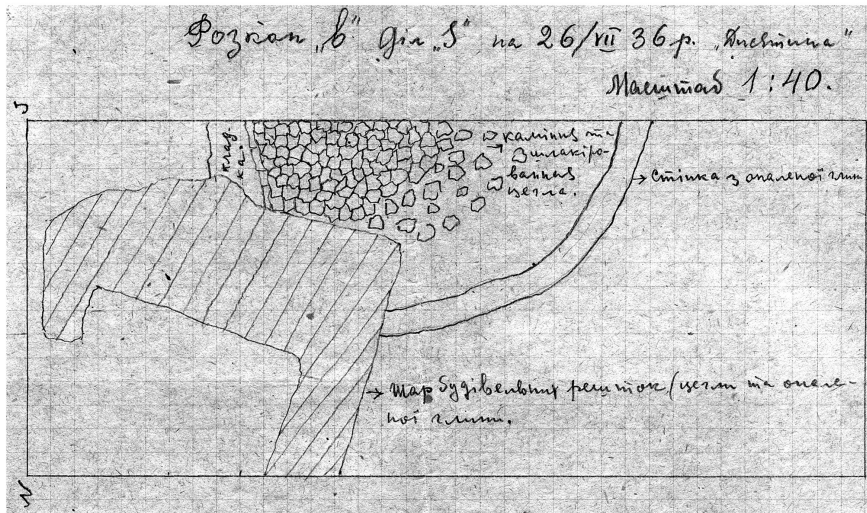 Розкоп „в" діл „S" на 26/VII 36 р. „Десятина"
Масштаб 1:40.
S
клад-
ка.
каміння та
шлакіро-
ванна
цегла.
Стінка з опаленої глин
Шар будівельних решток /цегли та опале-
ної глини.
N